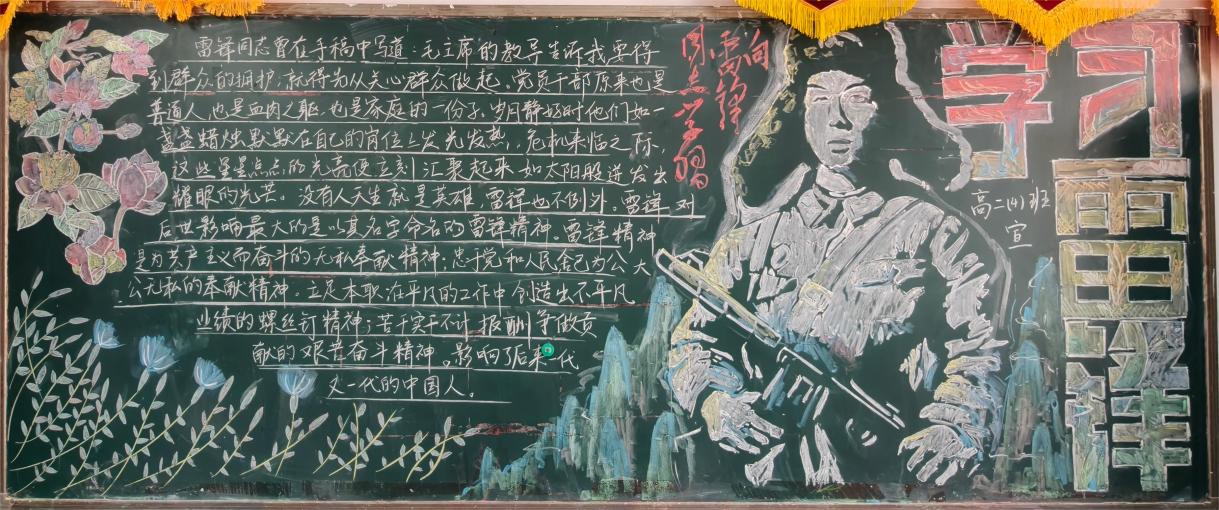 雷锋同志曾在手稿中写道：毛主席的教导告诉我要得
到群众的拥护，就得先从关心群众做起。党员干部原来也是
普通人，也是血肉之躯，也是家庭的一份子，岁月静好时他们如一
盏盏蜡烛默默在自己的岗位上发光发热，危机来临之际，
这些星星点点的光亮便立刻汇聚起来如太阳般迸发出
耀眼的光芒。没有人天生就是英雄，雷锋也不例外。雷锋对
后世影响最大的是以其名字命名的雷锋精神。雷锋精神
是为共产主义而奋斗的无私奉献精神；忠于党和人民舍己为公大
公无私的奉献精神；立足本职在平凡的工作中创造出不平凡
业绩的螺丝钉精神；苦干实干不计报酬争做贡
献的艰苦奋斗精神。影响了后来一代
又一代的中国人。
向雷锋同志学习
学习雷锋
高二(4)班
宣